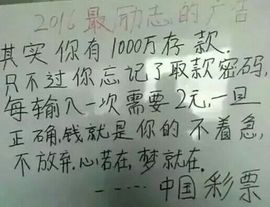 2016最励志的广告
其实你有1000万存款.
只不过你忘记了取款密码,
每输入一次需要2元,一旦
正确,钱就是你的不着急,
不放弃.心若在,梦就在.
-----中国彩票